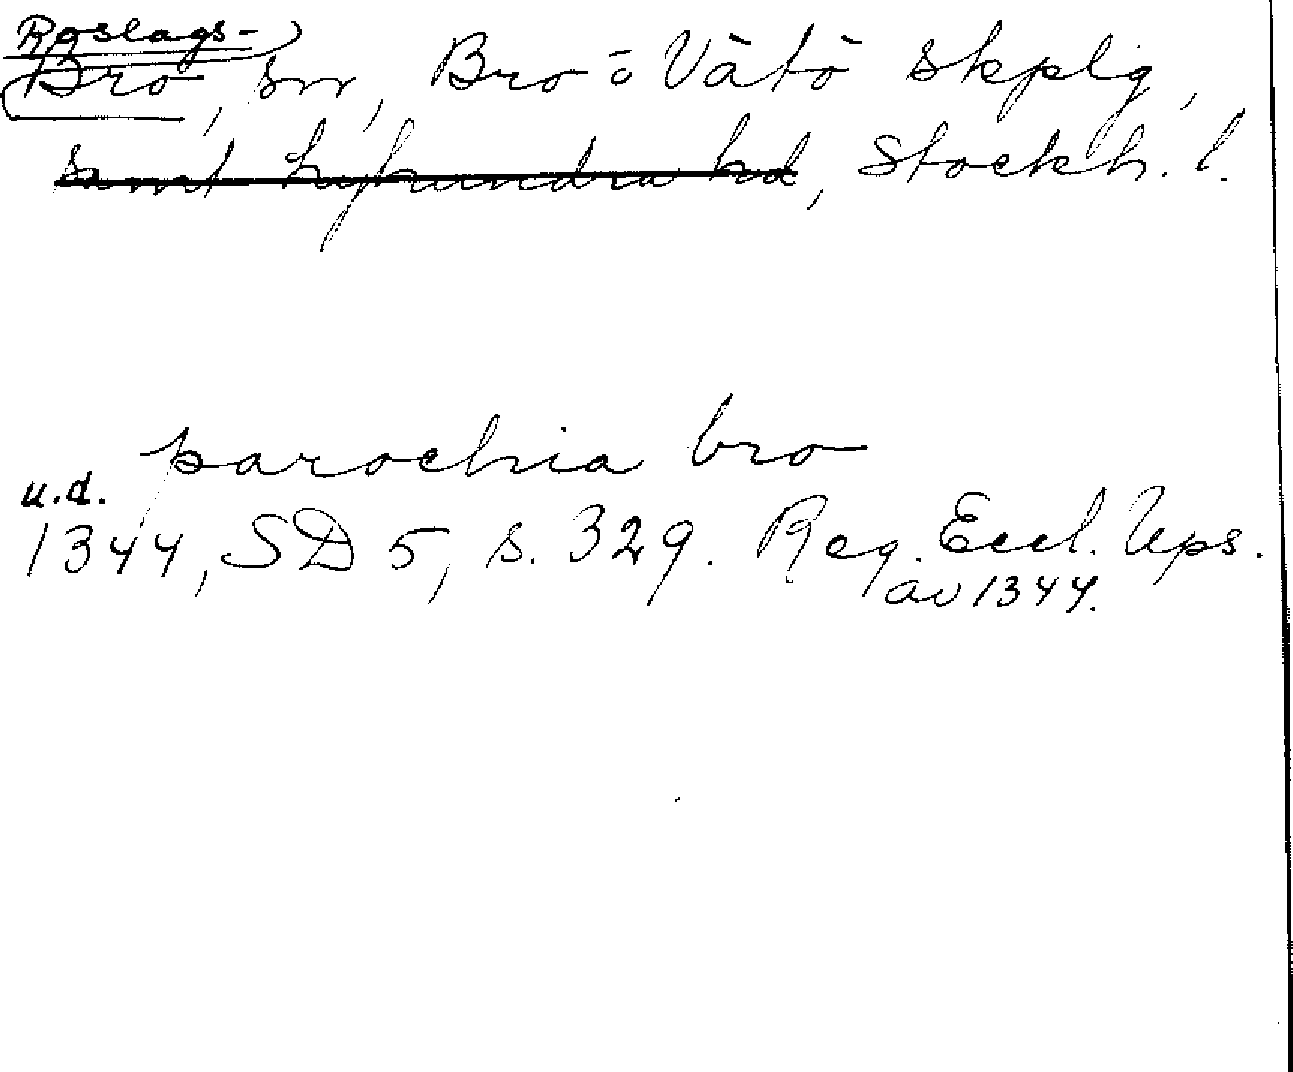 Roslags-
Bro, sn, Bro o Vätö skplg,
samt Lyhundra hd, Stockh. l.
parochia bro
u.d.
1344, SD 5, s. 329. Reg. Eccl. Ups.
av 1344.